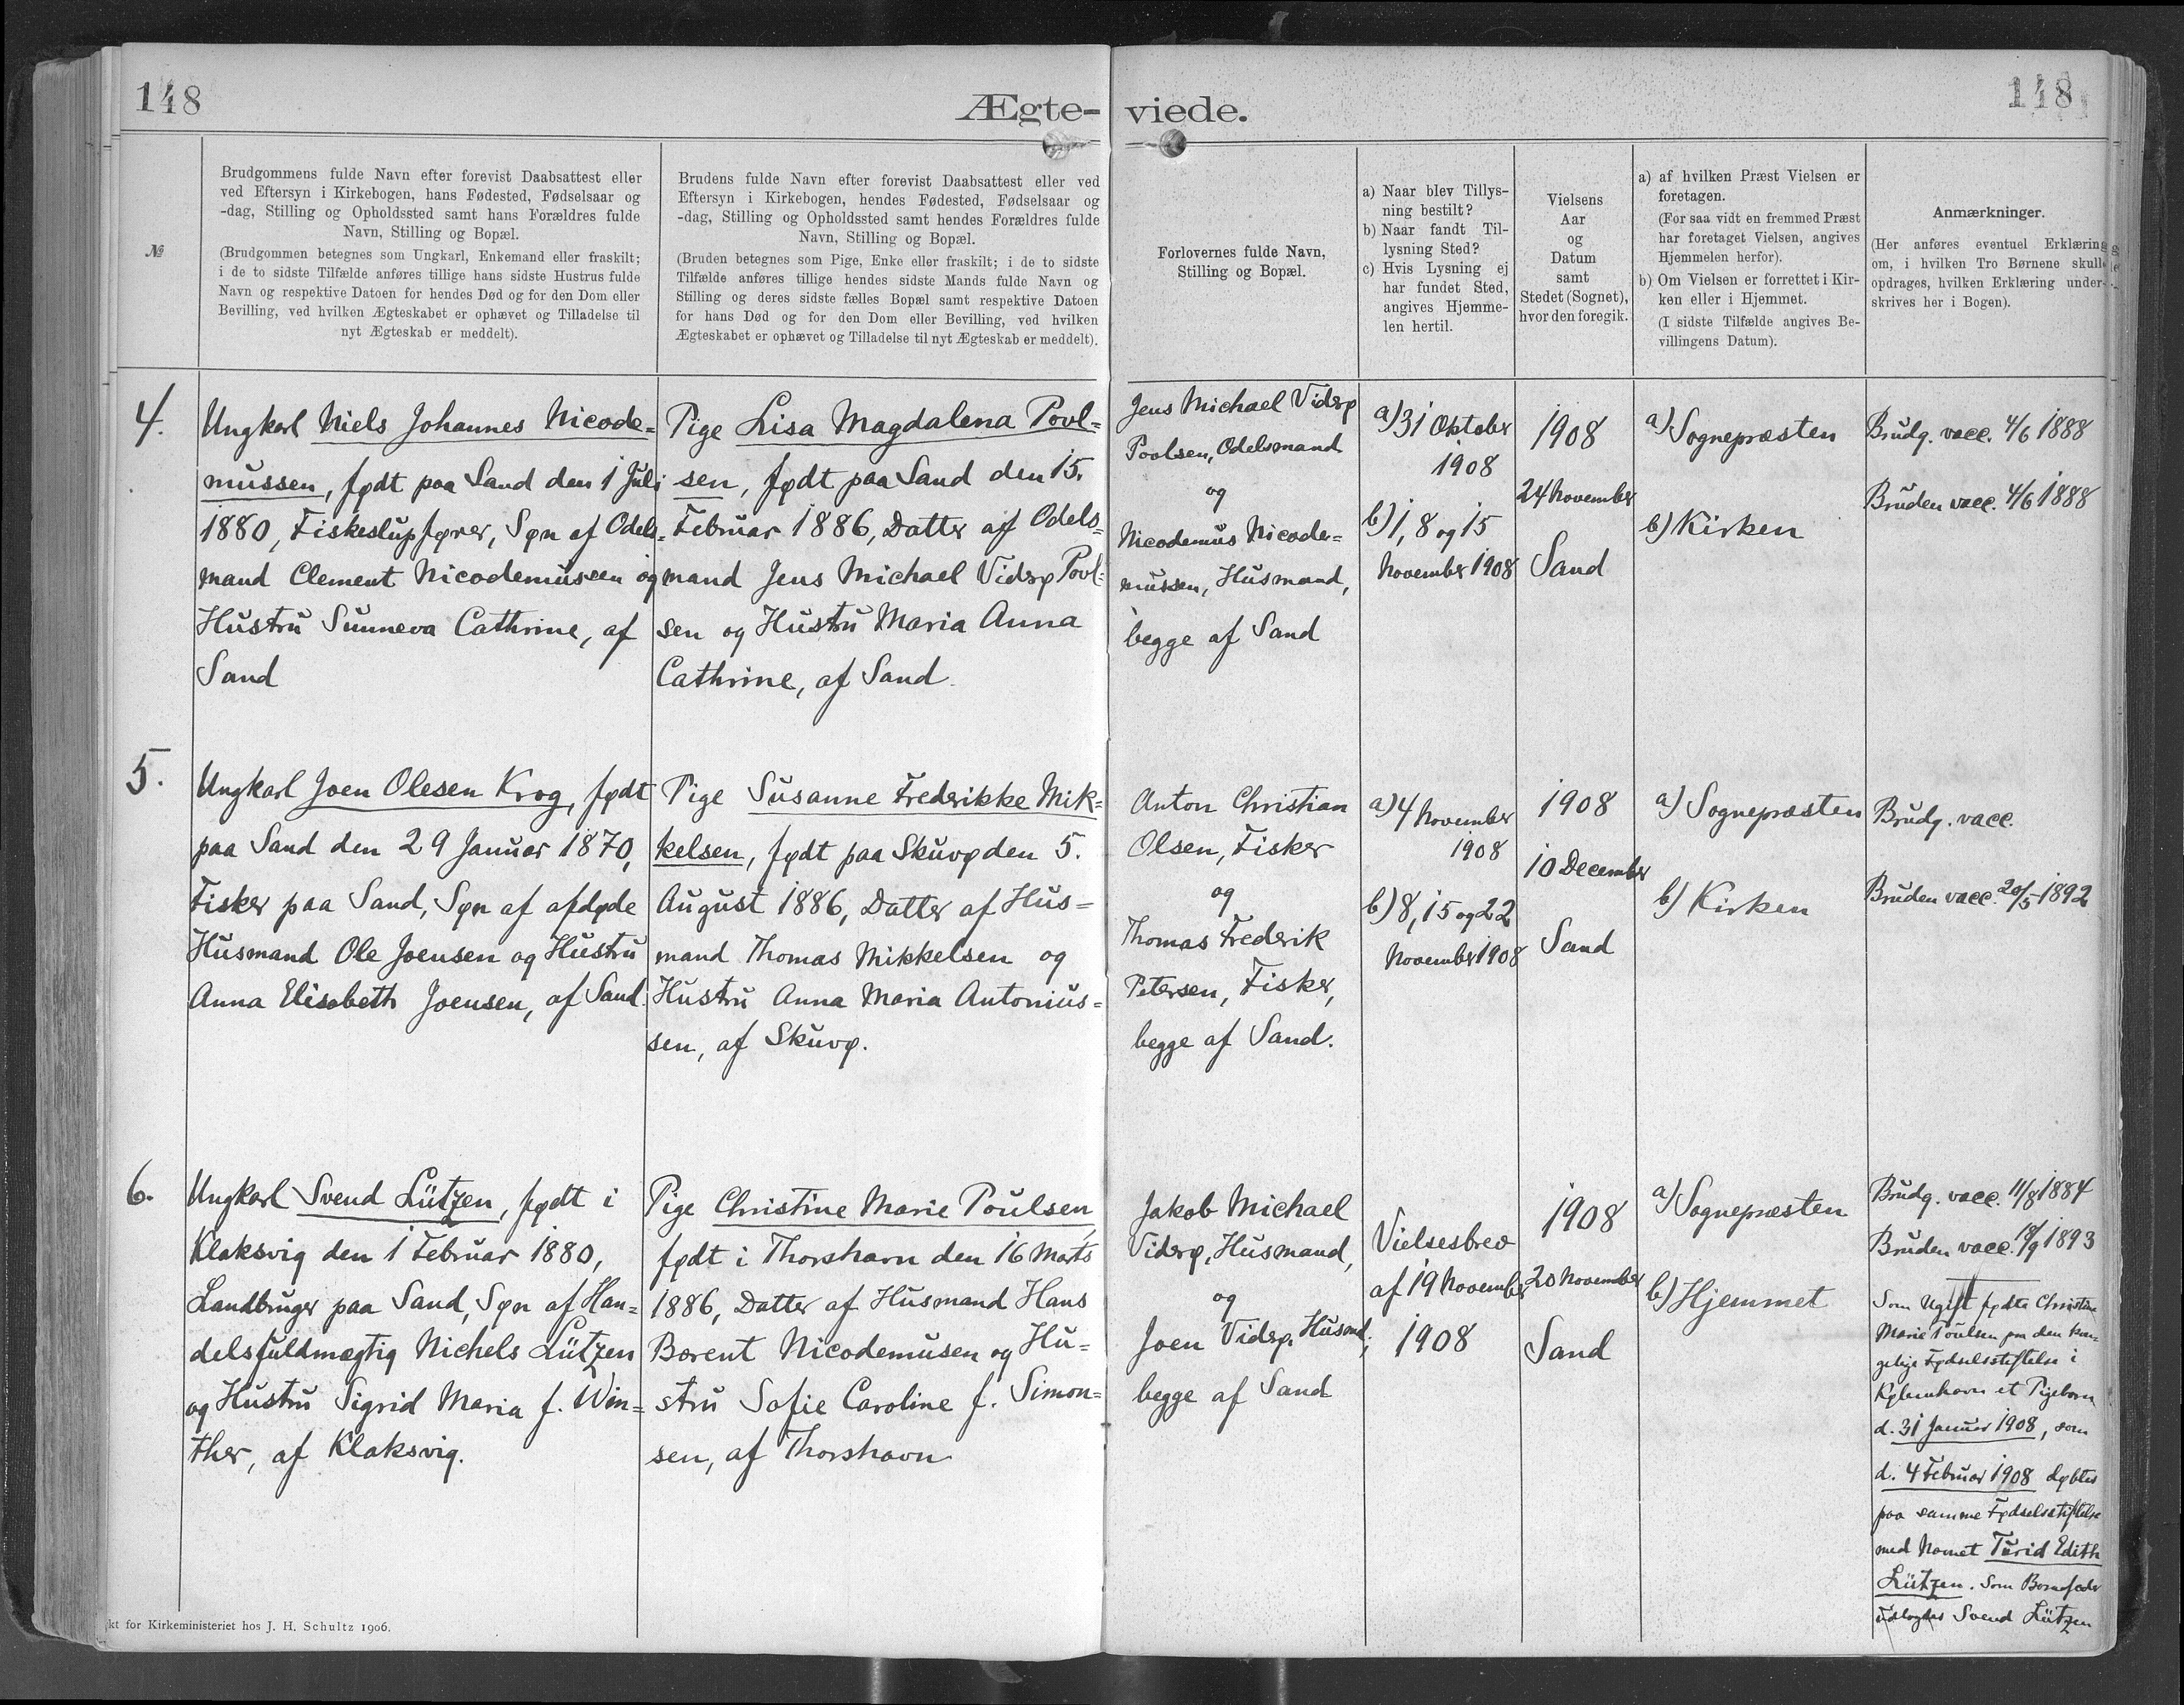 148
Ægte-
viede.
148
№
Brudgommens fulde Navn efter forevist Daabsattest eller
ved Eftersyn i Kirkebogen, hans Fødested, Fødselsaar og
-dag, Stilling og Opholdssted samt hans Forældres fulde
Navn, Stilling og Bopæl.
(Brudgommen betegnes som Ungkarl, Enkemand eller fraskilt;
i de to sidste Tilfælde anføres tillige hans sidste Hustrus fulde
Navn og respektive Datoen for hendes Død og for den Dom eller
Bevilling, ved hvilken Ægteskabet er ophævet og Tilladelse til
nyt Ægteskab er meddelt).
Brudens fulde Navn efter forevist Daabsattest eller ved
Eftersyn i Kirkebogen, hendes Fødested, Fødselsaar og
-dag, Stilling og Opholdssted samt hendes Forældres fulde
Navn, Stilling og Bopæl.
(Bruden betegnes som Pige, Enke eller fraskilt; i de to sidste
Tilfælde anføres tillige hendes sidste Mands fulde Navn og
Stilling og deres sidste fælles Bopæl samt respektive Datoen
for hans Død og for den Dom eller Bevilling, ved hvilken
Ægteskabet er ophævet og Tilladelse til nyt Ægteskab er meddelt).
Forlovernes fulde Navn,
Stilling og Bopæl.
a) Naar blev Tillys-
ning bestilt?
b) Naar fandt Til-
lysning Sted?
c) Hvis Lysning ej
har fundet Sted,
angives Hjemme-
len hertil.
Vielsens
Aar
og
Datum
samt
Stedet (Sognet),
hvor den foregik.
a) af hvilken Præst Vielsen er
foretagen.
(For saa vidt en fremmed Præst
har foretaget Vielsen, angives
Hjemmelen herfor).
b) Om Vielsen er forrettet i Kir-
ken eller i Hjemmet.
(I sidste Tilfælde angives Be-
villingens Datum).
Anmærkninger.
(Her anføres eventuel Erklæring
om, i hvilken Tro Børnene skulle
opdrages, hvilken Erklæring under-
skrives her i Bogen).
4.
Ungkarl Niels Johannes Nicode=
mussen, født paa Sand den 1 Juli
1880, Fiskeslupfører, Søn af Odels=
mand Clement Nicodemussen og
Hustru Sunneva Cathrine, af
Sand
Pige Lisa Magdalena Povl=
sen, født paa Sand den 15.
Februar 1886, Datter af Odels=
mand Jens Michael Viderø Povl=
sen og Hustru Maria Anna
Cathrine, af Sand.
Jens Michael Viderø
Povlsen, Odelsmand
og
Nicodemus Nicode=
mussen, Husmand,
begge af Sand
a) 31 Oktober
1908
b) 1, 8 og 15
November 1908
1908
24 November
Sand
a) Sognepræsten
b) Kirken
Brudg. vacc. 4/6 1888
Bruden vacc. 4/6 1888
5.
Ungkarl Joen Olesen Krog, født
paa Sand den 29 Januar 1870,
Fisker paa Sand, Søn af afdøde
Husmand Ole Joensen og Hustru
Anna Elisabeth Joensen, af Sand.
Pige Susanne Frederikke Mik=
kelsen, født paa Skuvø den 5.
August 1886, Datter af Hus=
mand Thomas Mikkelsen og
Hustru Anna Maria Antonius=
sen, af Skuvø.
Anton Christian
Olsen, Fisker
og
Thomas Frederik
Petersen, Fisker,
begge af Sand.
a) 4 November
1908
b) 8, 15 og 22
November 1908
1908
10 December
Sand
a) Sognepræsten
b) Kirken
Brudg. vacc.
Bruden vacc. 20/5 1892
6.
Ungkarl Svend Lützen, født i
Klaksvig den 1 Februar 1880,
Landbruger paa Sand, Søn af Han=
delsfuldmægtig Nichels Lützen
og Hustru Sigrid Maria f. Win=
ther, af Klaksvig.
Pige Christine Marie Poulsen,
født i Thorshavn den 16 Marts
1886, Datter af Husmand Hans
Berent Nicodemusen og Hu=
stru Sofie Caroline f. Simon=
sen, af Thorshavn
Jakob Michael
Viderø, Husmand,
og
Joen Viderø, Husmd,
begge af Sand
Vielsesbrev
af 19 November
1908
1908
20 November
Sand
a) Sognepræsten
b) Hjemmet
Brudg. vacc. 11/8 1884
Bruden vacc. 18/9 1893
Som Ugift fødte Christine
Marie Poulsen paa den kon=
gelige Fødselsstiftelse i
København et Pigebarn
d. 31 Januar 1908, som
d. 4 Februar 1908 døbtes
paa samme Fødselsstiftelse
med Navnet Turid Edith
Lützen. Som Barnefader
udlagdes Svend Lützen
kt for Kirkeministeriet hos J. H. Schultz 1906.